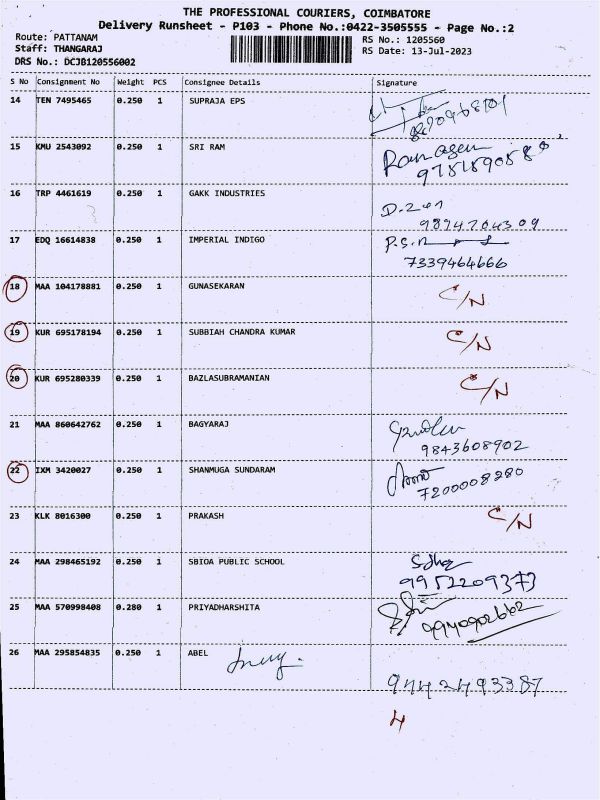 THE PROFESSIONAL COURIERS, COIMBATORE
Delivery Runsheet - P103 - Phone No.:0422-3505555 - Page No.:2
Route: PATTANAM RS No.: 1205560
Staff: THANGARAJ RS Date: 13-Jul-2023
DRS No.: DCJB120556002
S No Consignment No Weight PCS Consignee Details Signature
14 TEN 7495465 0.250 1 SUPRAJA EPS
15 KMU 2543092 0.250 1 SRI RAM
16 TRP 4461619 0.250 1 GAKK INDUSTRIES
9894704309
17 EDQ 16614838 0.250 1 IMPERIAL INDIGO
7339464666
18 MAA 104178881 0.250 1 GUNASEKARAN C/N
19 KUR 695178194 0.250 1 SUBBIAH CHANDRA KUMAR C/N
20 KUR 695280339 0.250 1 BAZLASUBRAMANIAN C/N
21 MAA 860642762 0.250 1 BAGYARAJ
9843608902
22 IXM 3420027 0.250 1 SHANMUGA SUNDARAM
7200008280
23 KLK 8016300 0.250 1 PRAKASH C/N
24 MAA 298465192 0.250 1 SBIOA PUBLIC SCHOOL
9952209373
25 MAA 570998408 0.280 1 PRIYADHARSHITA
9940902662
26 MAA 295854835 0.250 1 ABEL
9442493387
4